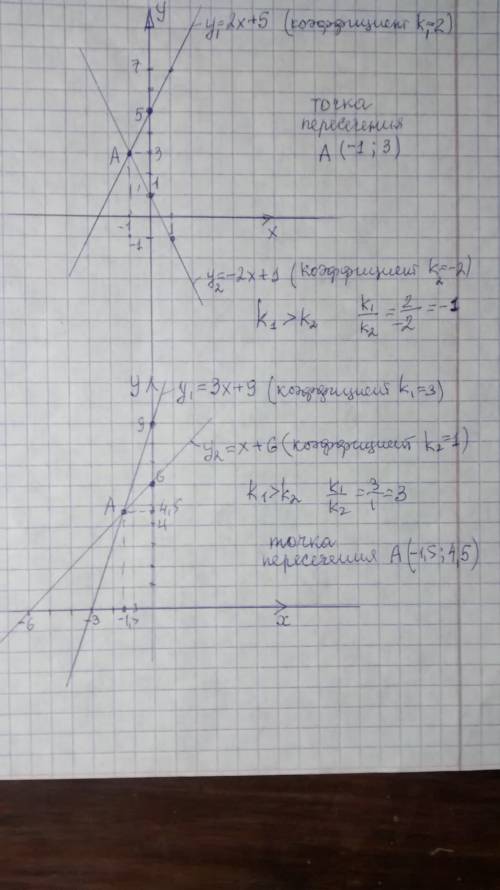 y
y₁=2x+5 (коэффициент k₁=2)
7
5
точка
пересечения
A (-1; 3)
A
3
1
-1
1
-1
x
y₂=-2x+1 (коэффициент k₂=-2)
k₁>k₂ k₁/k₂=2/-2=-1
y
y₁=3x+9 (коэффициент k₁=3)
9
y₂=x+6 (коэффициент k₂=1)
6
k₁>k₂ k₁/k₂=3/1=3
A
4,5
4
точка
пересечения A(-1,5; 4,5)
-6
-3
-1,5
x